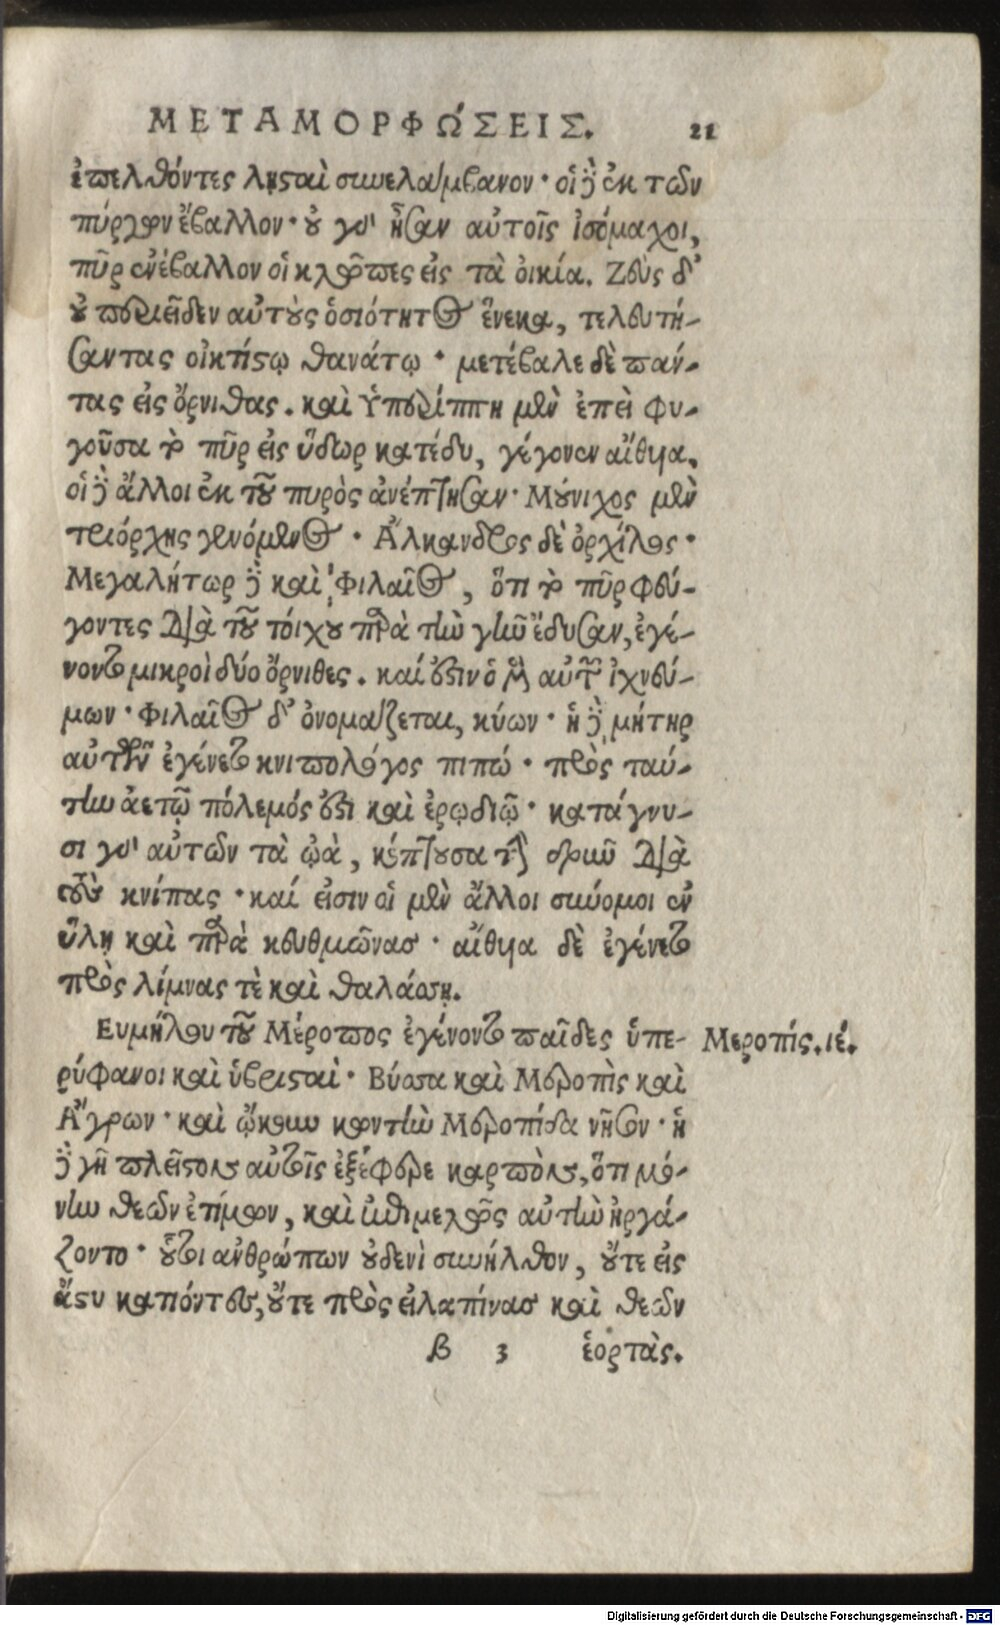 ΜΕΤΑΜΟΡΦΏΣΕΙΣ. 21
ἐπελθόντες λῃσταὶ συνελάμβανον· οἱ δὲ ἐκ τῶν
πύργων ἔβαλλον· οὐ γὰρ ἦσαν αὐτοῖς ἰσόμαχοι,
πῦρ ἐνέβαλλον οἱ κλῶπες εἰς τὰ οἰκία. Ζεὺς δ'
οὐ περιεῖδεν αὐτοὺς ὁσιότητος ἕνεκα, τελευτή-
σαντας οἰκτίστῳ θανάτῳ· μετέβαλε δὲ πάν-
τας εἰς ὄρνιθας. καὶ Ὑπερίππη μὲν ἐπεὶ φυ-
γοῦσα τὸ πῦρ εἰς ὕδωρ κατέδυ, γέγονεν αἴθυια,
οἱ δὲ ἄλλοι ἐκ τοῦ πυρὸς ἀνέπτησαν· Μούνιχος μὲν
τριόρχης γενόμενος· Ἄλκανδρος δὲ ὀρχίλος·
Μεγαλήτωρ δὲ καὶ Φιλαῖος, ὅτι τὸ πῦρ φεύ-
γοντες διὰ τοῦ τοίχου παρὰ τὴν γῆν ἔδυσαν, ἐγέ-
νοντο μικροὶ δύο ὄρνιθες. καί ἐστιν ὁ μὲν αὐτῶν ἰχνεύ-
μων· Φιλαῖος δ' ὀνομάζεται, κύων· ἡ δὲ μήτηρ
αὐτῶν ἐγένετο κνιπολόγος πιπώ· πρὸς ταύ-
την ἀετῷ πόλεμός ἐστι καὶ ἐρῳδιῷ· κατάγνυ-
σι γὰρ αὐτῶν τὰ ᾠὰ, κόπτουσα τὴν δρῦν διὰ
τοὺς κνίπας· καί εἰσιν οἱ μὲν ἄλλοι σύνομοι ἐν
ὕλῃ καὶ παρὰ κευθμῶνας· αἴθυια δὲ ἐγένετο
πρὸς λίμνας τὲ καὶ θαλάσσῃ.
Ευμήλου τοῦ Μέροπος ἐγένοντο παῖδες ὑπε-
Μεροπίς. ιέ.
ρύφανοι καὶ ὑβρισταὶ· Βύσσα καὶ Μεροπὶς καὶ
Ἄγρων· καὶ ᾤκουν κων τὴν Μεροπίδα νῆσον· ἡ
δὲ γῆ πλείστους αὐτοῖς ἐξέφερε καρποὺς, ὅτι μό-
νην θεῶν ἐτίμων, καὶ ἐπιμελῶς αὐτὴν ἠργά-
ζοντο· οὗτοι ἀνθρώπων οὐδενὶ συνήλθον, οὔτε εἰς
ἄστυ καπιόντες, οὔτε πρὸς εἰλαπίνας καὶ θεῶν
β 3 ἑορτὰς.
Digitalisierung gefördert durch die Deutsche Forschungsgemeinschaft - DFG